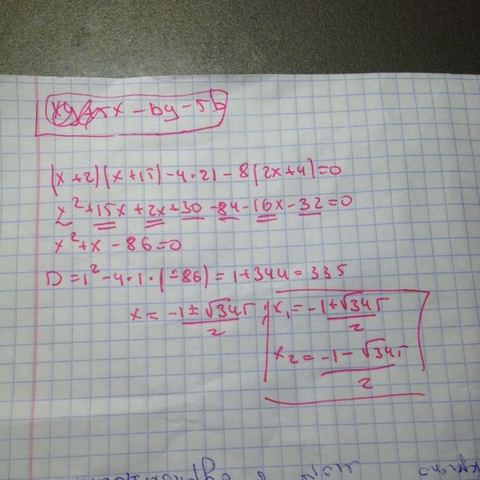 xy+5x-by-5b
(x+2)(x+15)-4·21-8(2x+4)=0
x²+15x+2x+30-84-16x-32=0
x²+x-86=0
D=1²-4·1·(-86)=1+344=335
x=-1±√345/2; x₁=-1+√345/2
x₂=-1-√345/2